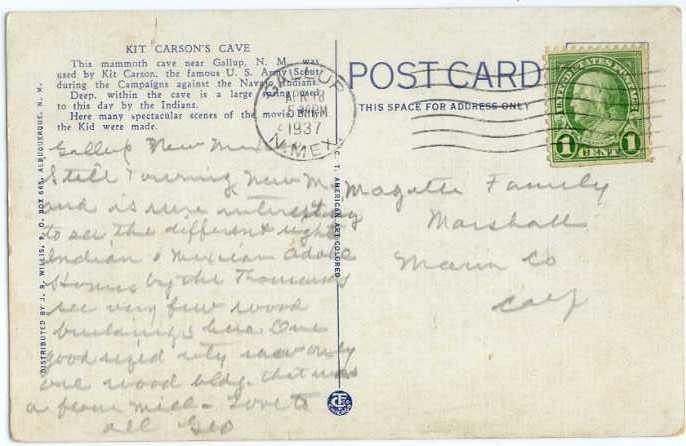 KIT CARSON'S CAVE
This mammoth cave near Gallup, N. M., was
used by Kit Carson, the famous U. S. Army Scout
during the Campaigns against the Navajo Indians.
Deep, within the cave is a large spring used
to this day by the Indians.
Here many spectacular scenes of the movie Billy
the Kid were made.
POST CARD
THIS SPACE FOR ADDRESS ONLY
GALLUP
APR 18
5 PM
1937
N.MEX.
UNITED STATES POSTAGE
1 CENT 1
DISTRIBUTED BY J. R. WILLIS, P. O. BOX 665, ALBUQUERQUE, N. M.
C. T. AMERICAN ART COLORED
Gallup New Mex
Still Touring New Mex
and is sure interesting
to see the different sights
Indian & Mexican Adobe
Homes by the Thousands
see very few wood
buildings here. One
good sized city saw only
one wood bldg. that was
a flour mill - Love to
all Geo
Magetti Family
Marshall
Marin Co
Calif